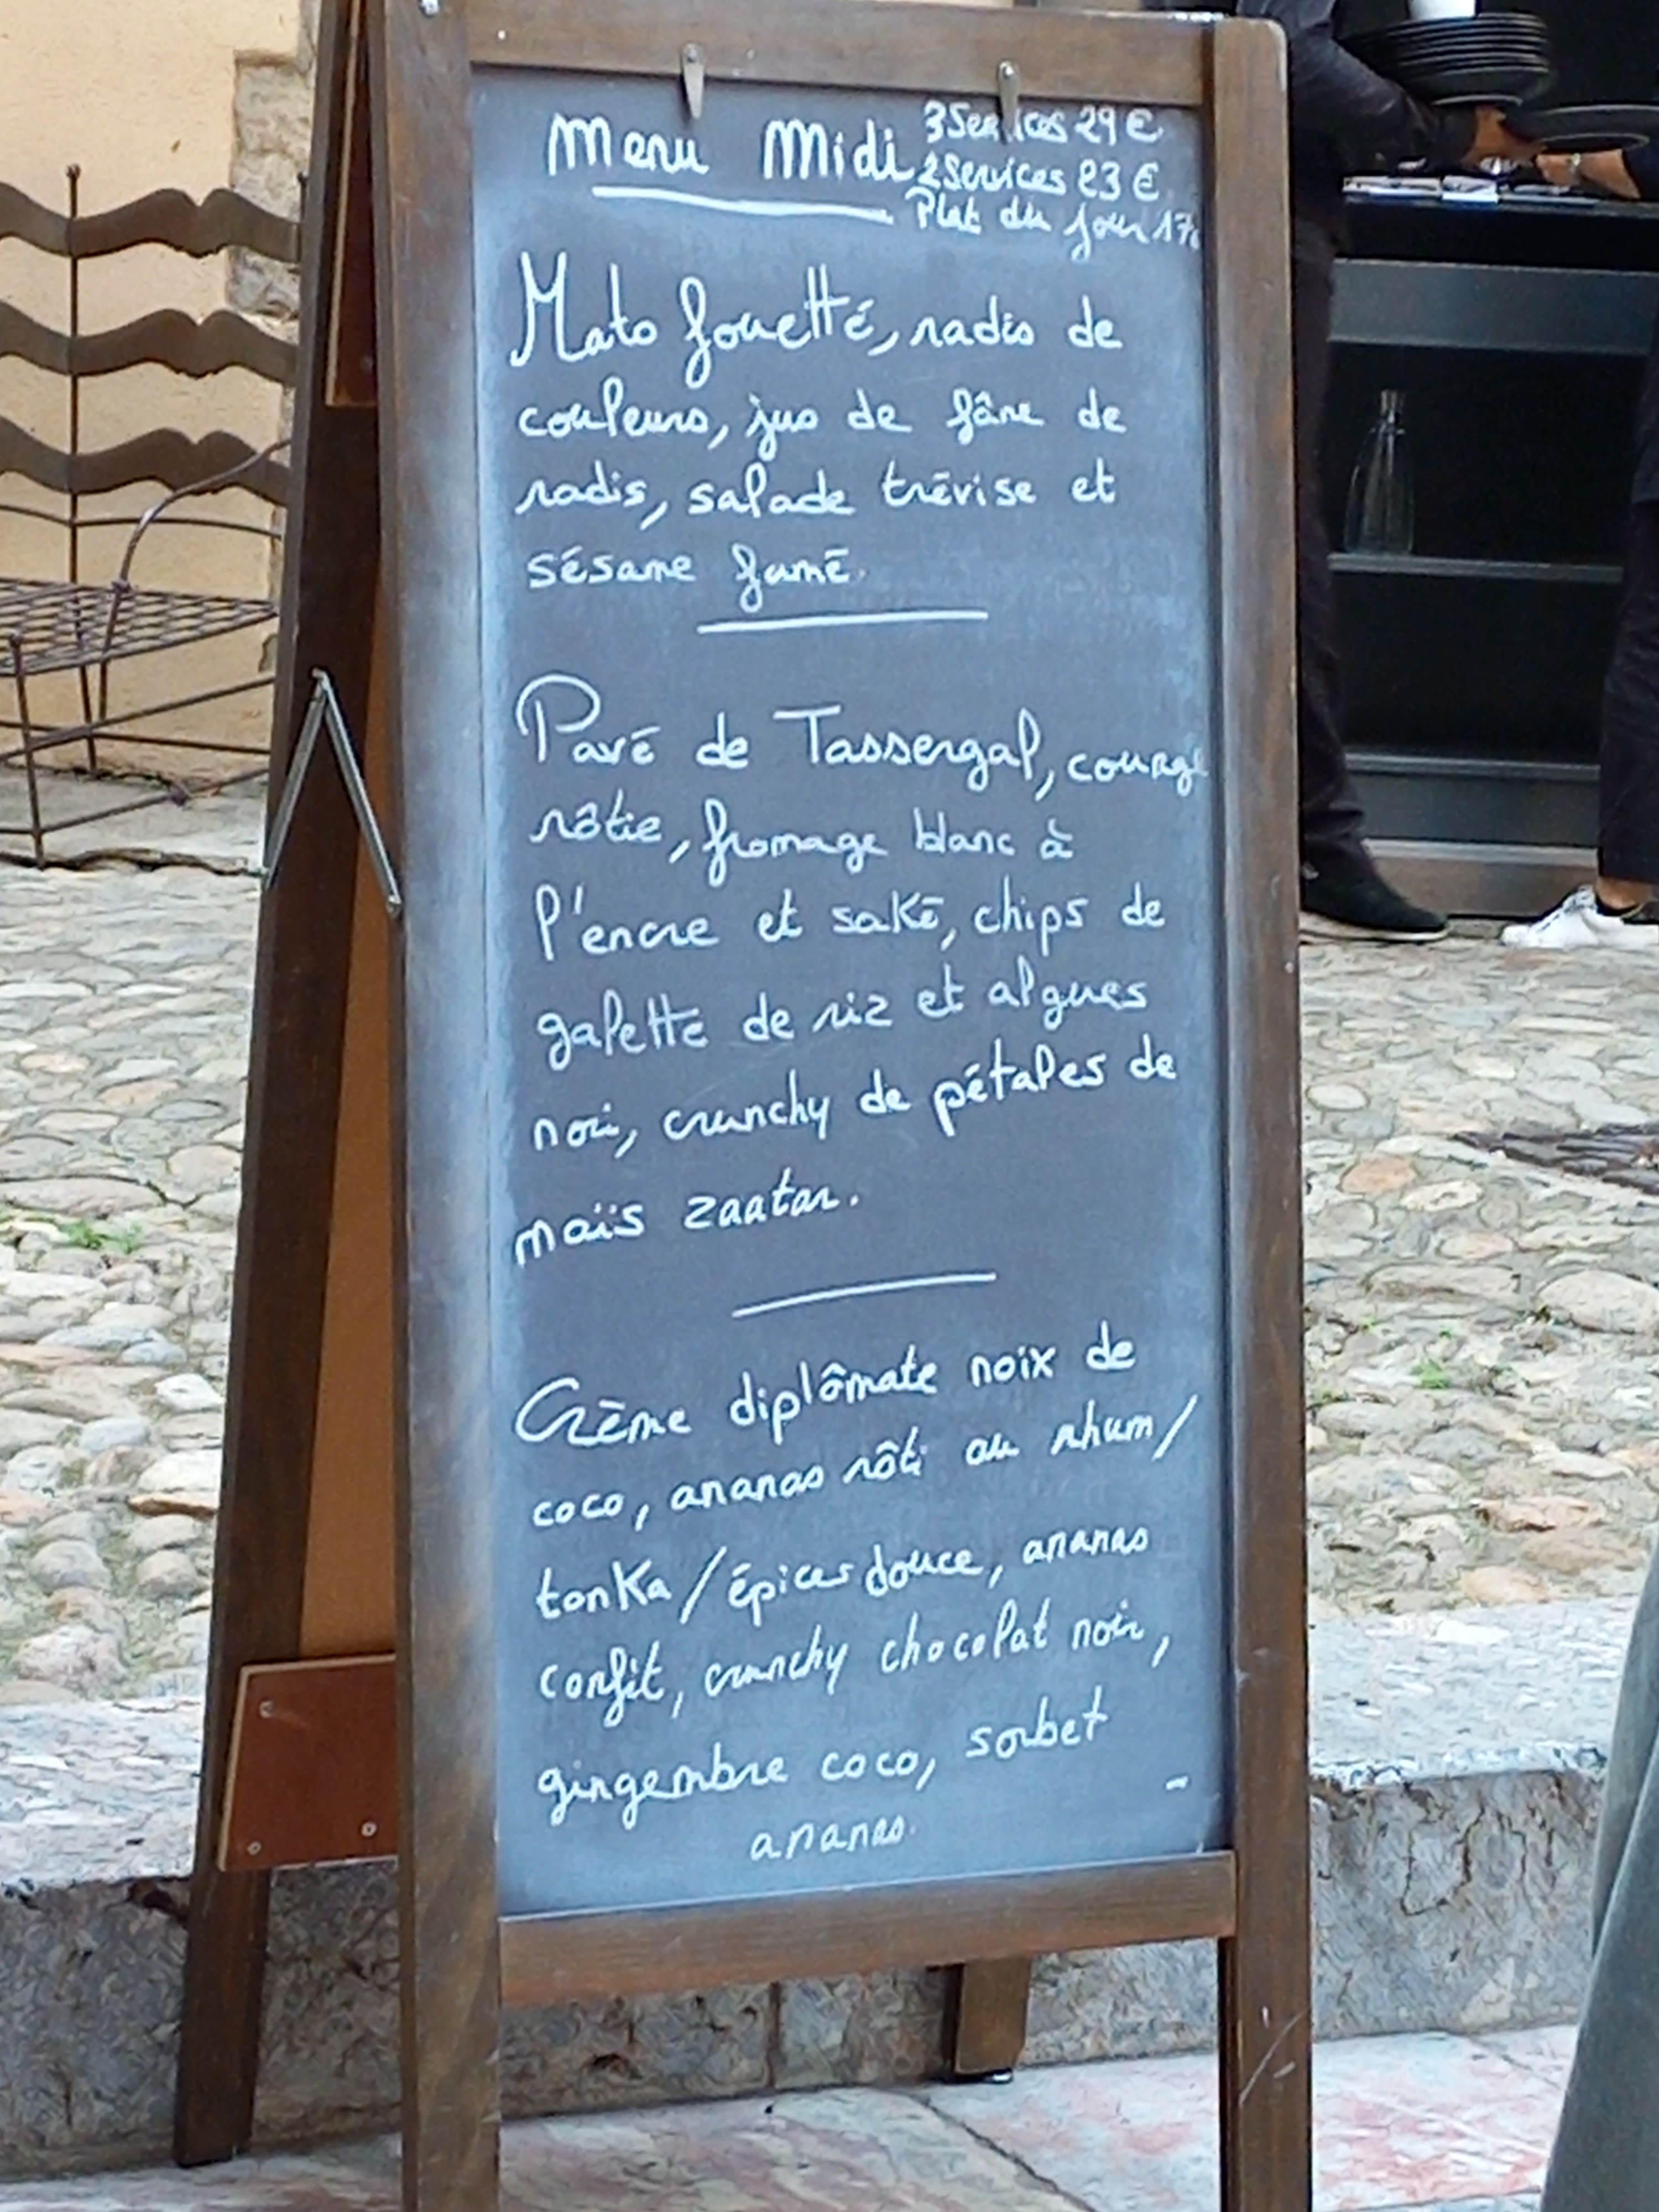 Menu Midi
3 Services 29 €
2 Services 23 €
Plat du jour 17€
Mato fouetté, radis de
couleurs, jus de fâne de
radis, salade trévise et
sésame fumé.
Pavé de Tassergal, courge
rôtie, fromage blanc à
l'encre et saké, chips de
galette de riz et algues
nori, crunchy de pétales de
maïs zaatar.
Crème diplômate noix de
coco, ananas rôti au rhum/
tonka/épices douce, ananas
confit, crunchy chocolat noir,
gingembre coco, sorbet
ananas.